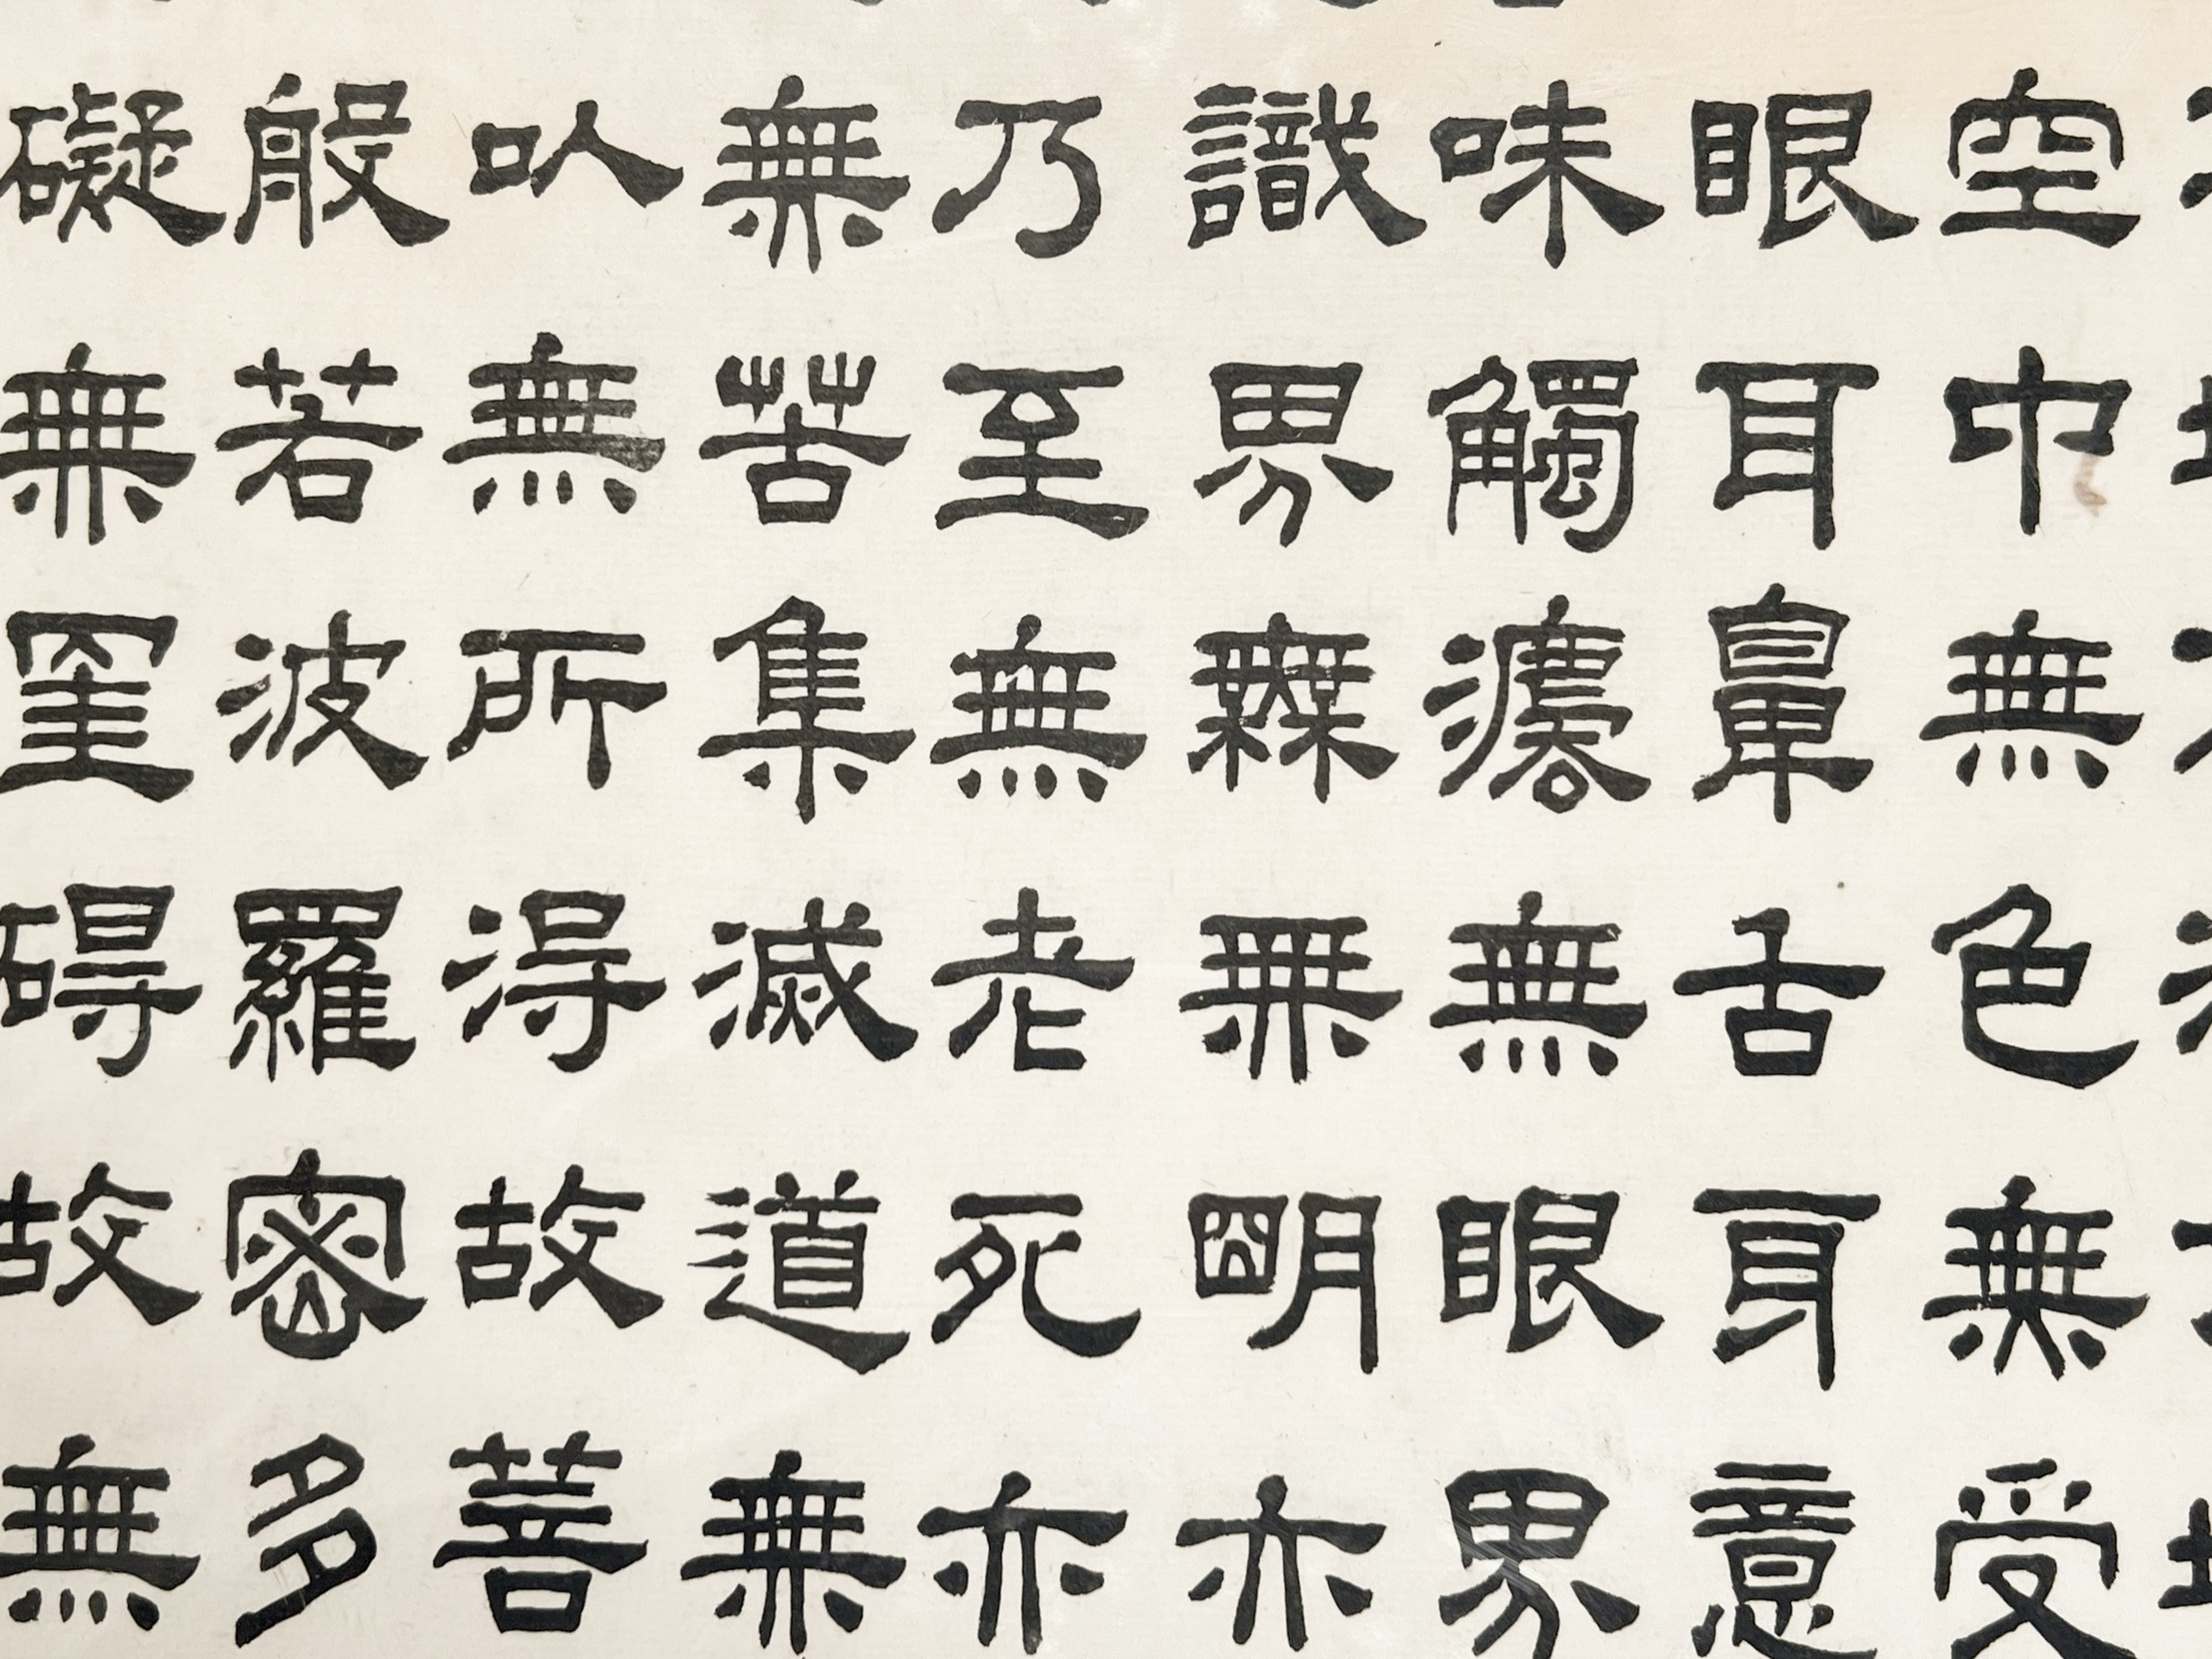 空中無色無受
眼耳鼻舌身意
味觸法無眼界
識界無無明亦
乃至無老死亦
無苦集滅道無
以無所得故菩
般若波羅蜜多
礙無罣礙故無